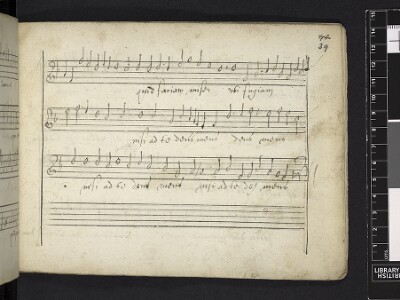 39
quid faciam miser ubi fugiam
nisi ad te deus meus deus meus
nisi ad te deus meus nisi ad te deus meus
LIBRARY
BRITISH